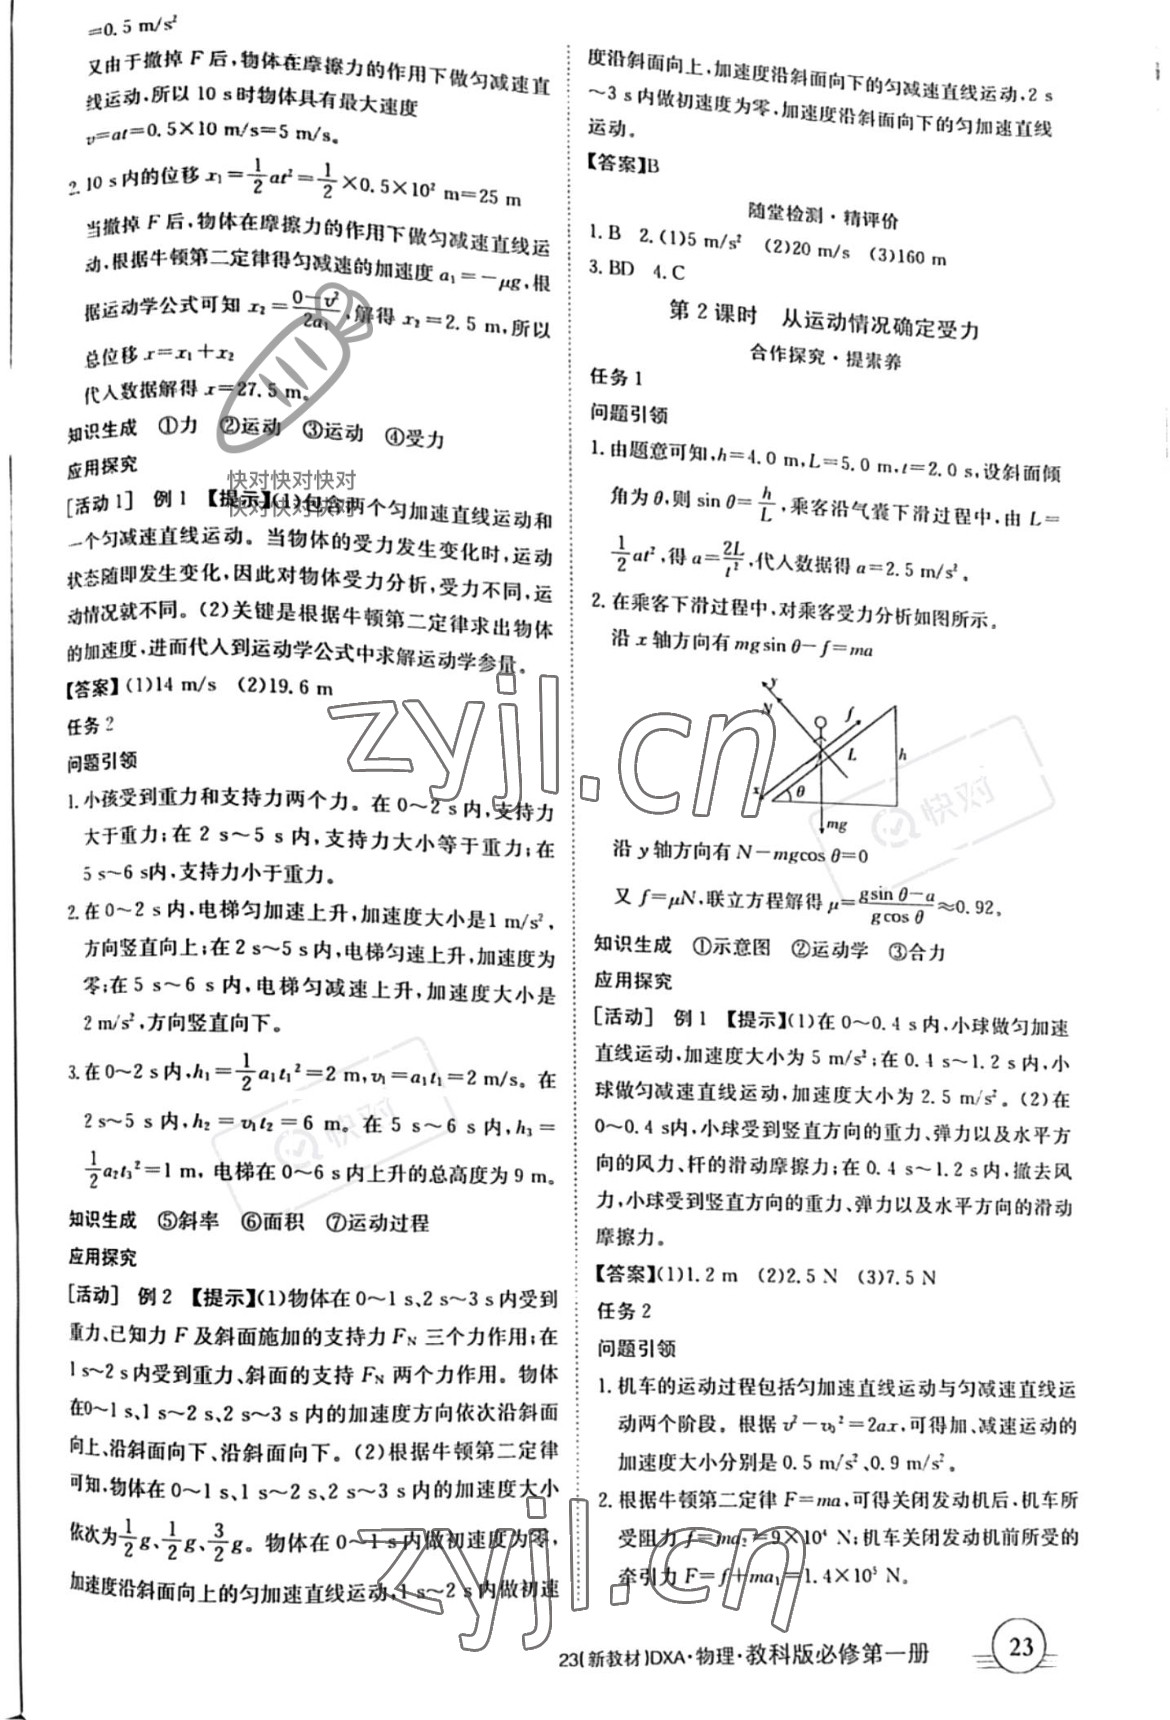 =0.5 m/s²
又由于撤掉 F 后,物体在摩擦力的作用下做匀减速直
线运动,所以 10 s时物体具有最大速度
v=at=0.5×10 m/s=5 m/s。
2. 10 s内的位移 x₁=1/2 at²=1/2×0.5×10² m=25 m
当撤掉 F 后,物体在摩擦力的作用下做匀减速直线运
动,根据牛顿第二定律得匀减速的加速度 a₁=-μg,根
据运动学公式可知 x₂=(0-v²)/(2a₁),解得 x₂=2.5 m,所以
总位移 x=x₁+x₂
代入数据解得 x=27.5 m。
知识生成 ①力 ②运动 ③运动 ④受力
应用探究
[活动1] 例1 【提示】(1)包含两个匀加速直线运动和
一个匀减速直线运动。当物体的受力发生变化时,运动
状态随即发生变化,因此对物体受力分析,受力不同,运
动情况就不同。(2)关键是根据牛顿第二定律求出物体
的加速度,进而代入到运动学公式中求解运动学参量。
【答案】(1)14 m/s (2)19.6 m
任务2
问题引领
1. 小孩受到重力和支持力两个力。在 0~2 s内,支持力
大于重力;在 2 s~5 s内,支持力大小等于重力;在
5 s~6 s内,支持力小于重力。
2. 在 0~2 s内,电梯匀加速上升,加速度大小是1 m/s²,
方向竖直向上;在 2 s~5 s内,电梯匀速上升,加速度为
零;在 5 s~6 s内,电梯匀减速上升,加速度大小是
2 m/s²,方向竖直向下。
3. 在 0~2 s内,h₁=1/2 a₁t₁²=2 m,v₁=a₁t₁=2 m/s。在
2 s~5 s内,h₂=v₁t₂=6 m。在 5 s~6 s内,h₃=
1/2 a₂t₃²=1 m,电梯在 0~6 s内上升的总高度为 9 m。
知识生成 ⑤斜率 ⑥面积 ⑦运动过程
应用探究
[活动] 例2 【提示】(1)物体在 0~1 s、2 s~3 s内受到
重力、已知力 F 及斜面施加的支持力 F_N 三个力作用;在
1 s~2 s内受到重力、斜面的支持 F_N 两个力作用。物体
在0~1 s、1 s~2 s、2 s~3 s内的加速度方向依次沿斜面
向上、沿斜面向下、沿斜面向下。(2)根据牛顿第二定律
可知,物体在 0~1 s、1 s~2 s、2 s~3 s内的加速度大小
依次为1/2 g、1/2 g、3/2 g。物体在 0~1 s内做初速度为零,
加速度沿斜面向上的匀加速直线运动,1 s~2 s内做初速
度沿斜面向上,加速度沿斜面向下的匀减速直线运动,2 s
~3 s内做初速度为零,加速度沿斜面向下的匀加速直线
运动。
【答案】B
随堂检测·精评价
1. B 2. (1)5 m/s² (2)20 m/s (3)160 m
3. BD 4. C
第2课时 从运动情况确定受力
合作探究·提素养
任务1
问题引领
1. 由题意可知,h=4.0 m,L=5.0 m,t=2.0 s,设斜面倾
角为θ,则 sin θ=h/L,乘客沿气囊下滑过程中,由 L=
1/2 at²,得 a=2L/t²,代入数据得 a=2.5 m/s²。
2. 在乘客下滑过程中,对乘客受力分析如图所示。
沿 x 轴方向有 mgsin θ-f=ma
y
N
f
L
h
x
θ
mg
沿 y 轴方向有 N-mgcos θ=0
又 f=μN,联立方程解得 μ=(gsin θ-a)/(gcos θ)≈0.92。
知识生成 ①示意图 ②运动学 ③合力
应用探究
[活动] 例1 【提示】(1)在 0~0.4 s内,小球做匀加速
直线运动,加速度大小为 5 m/s²;在 0.4 s~1.2 s内,小
球做匀减速直线运动,加速度大小为 2.5 m/s²。(2)在
0~0.4 s内,小球受到竖直方向的重力、弹力以及水平方
向的风力、杆的滑动摩擦力;在 0.4 s~1.2 s内,撤去风
力,小球受到竖直方向的重力、弹力以及水平方向的滑动
摩擦力。
【答案】(1)1.2 m (2)2.5 N (3)7.5 N
任务2
问题引领
1. 机车的运动过程包括匀加速直线运动与匀减速直线运
动两个阶段。根据 v²-v₀²=2ax,可得加、减速运动的
加速度大小分别是 0.5 m/s²、0.9 m/s²。
2. 根据牛顿第二定律 F=ma,可得关闭发动机后,机车所
受阻力 f=ma₂=9×10⁴ N;机车关闭发动机前所受的
牵引力 F=f+ma₁=1.4×10⁵ N。
23(新教材)DXA·物理·教科版必修第一册
23
快对快对快对
快对快对快对
zyjl.cn
快对
快对
zyjl.cn